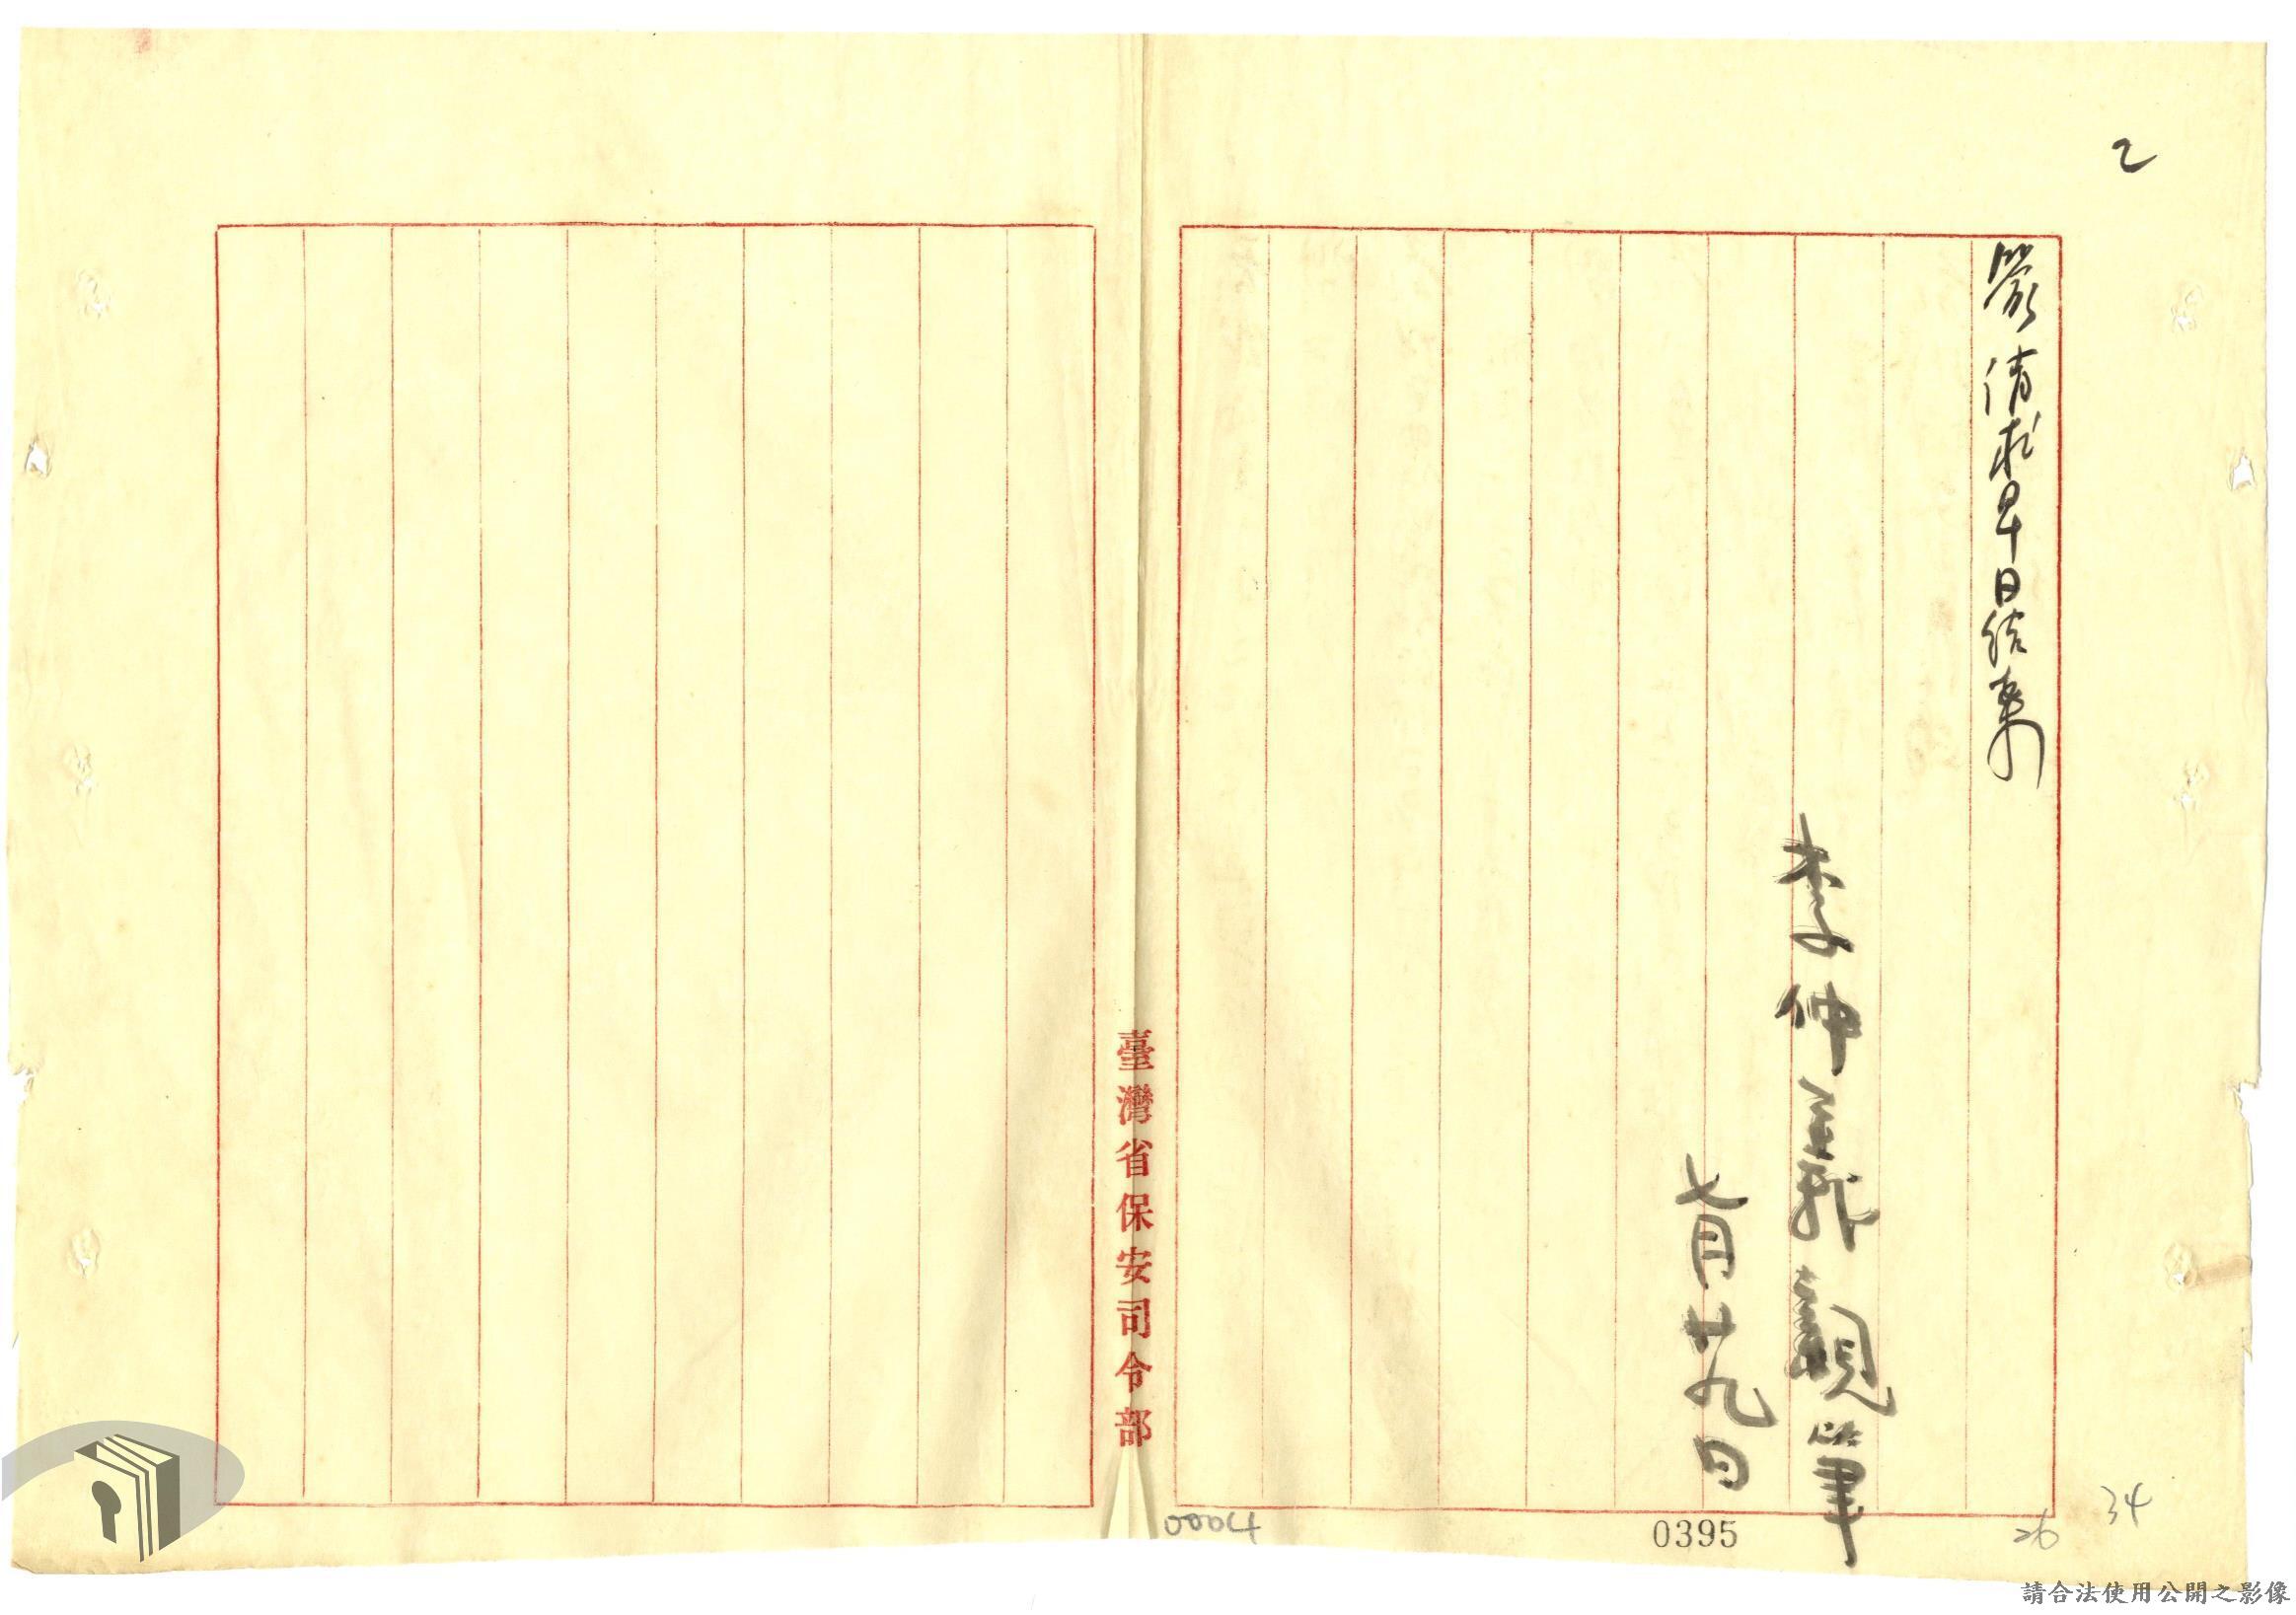 2
請求早日結案
李仲義親筆
七月廿九日
臺灣省保安司令部
0004
0395
26
34
請合法使用公開之影像